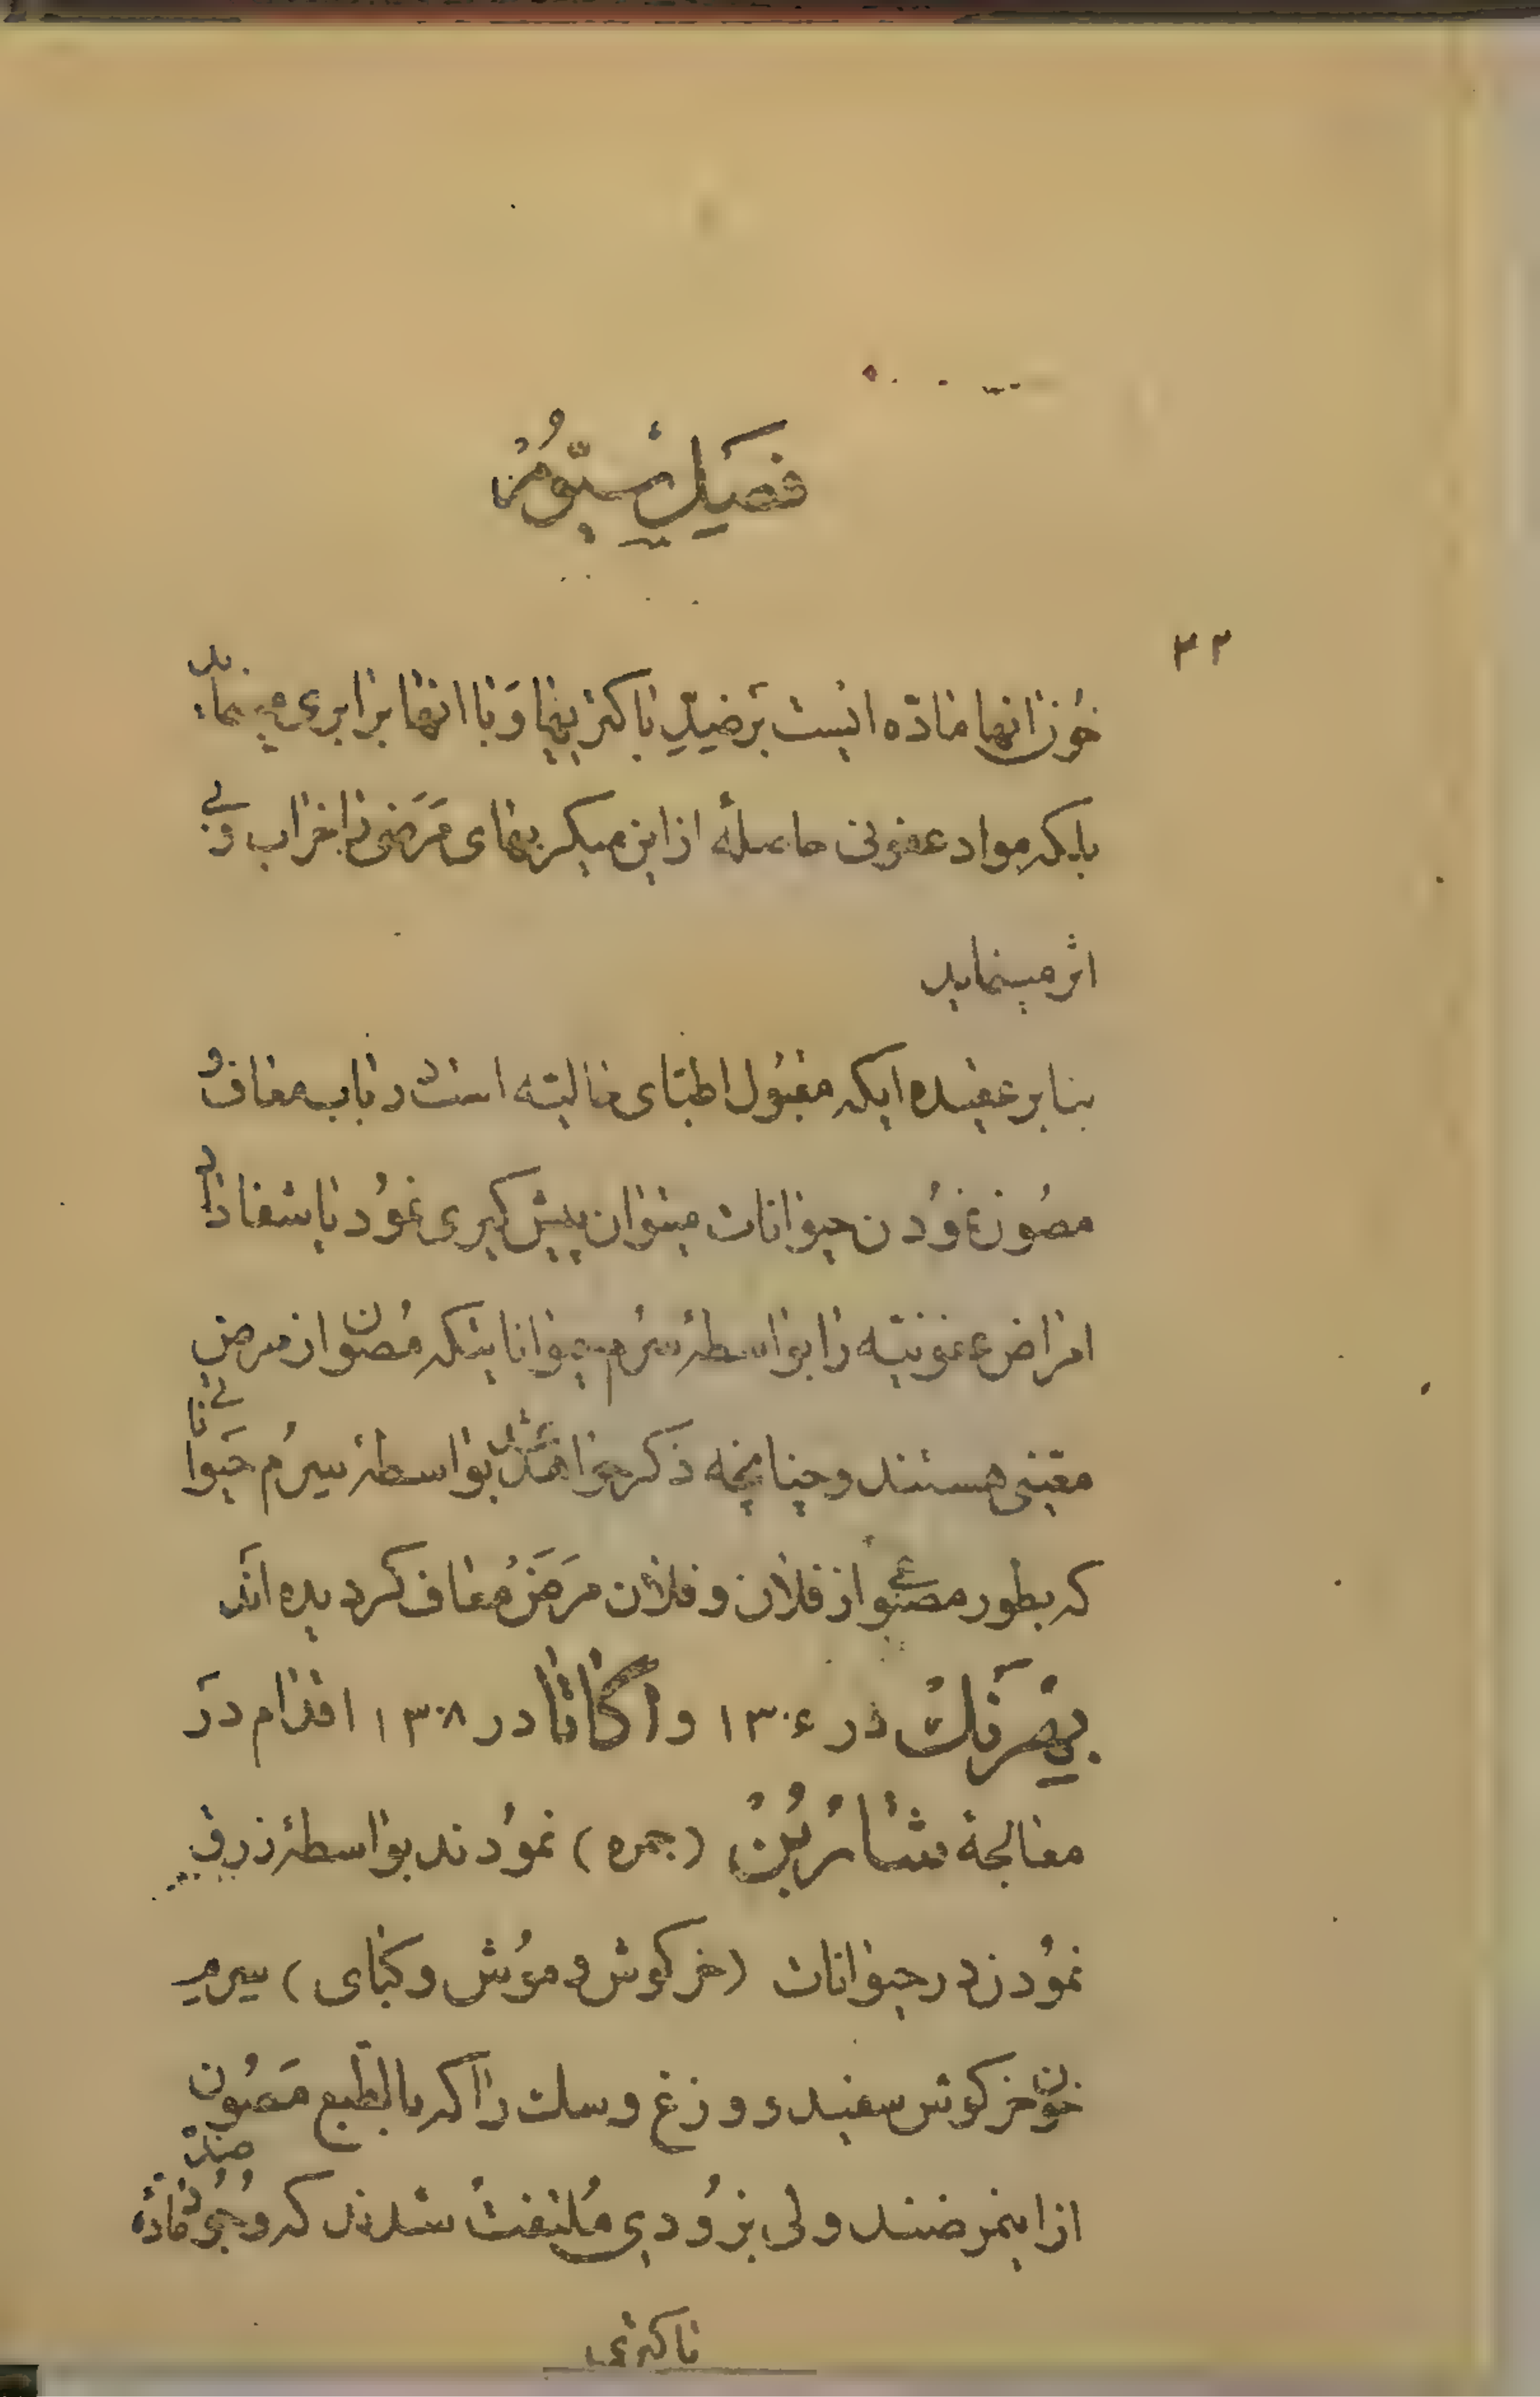 فصل سیّوم
۳۲
خون انها مادّه ایست بر ضدّ باکتریها و با انها برابری مینماید
بلکه مواد عفونی حاصلهٔ از این میکربهای مرضی را خراب و بی
اثر مینماید
بنا بر عقیده ایکه مقبول اطبّای حالیّه است در باب معاف و
مصون نمودن حیوانات میتوان پیش کیری نمود یا شفا داد
امراض عفونیّه را بواسطهٔ سرم حیواناتیکه مصون از مرض
معیّنی هستند و چنانچه ذکر خواهد شد بواسطهٔ سیرم حیواناتی
که بطور مصنوعی از فلان و فلان مرض معاف کردیده اند
بهرنک در ۱۳۰۶ و اکاتا در ۱۳۰۸ اقدام در
معالجهٔ شاربن (جمره) نمودند بواسطهٔ زرق
نمودن در حیوانات (خرکوش و موش و کبای) سیرم
خون خرکوش سفید و وزغ و سک را که بالطبع مصون
از اینمرضند ولی بزودی ملتفت شدند که وجود مادّه ضدّ
باکتری